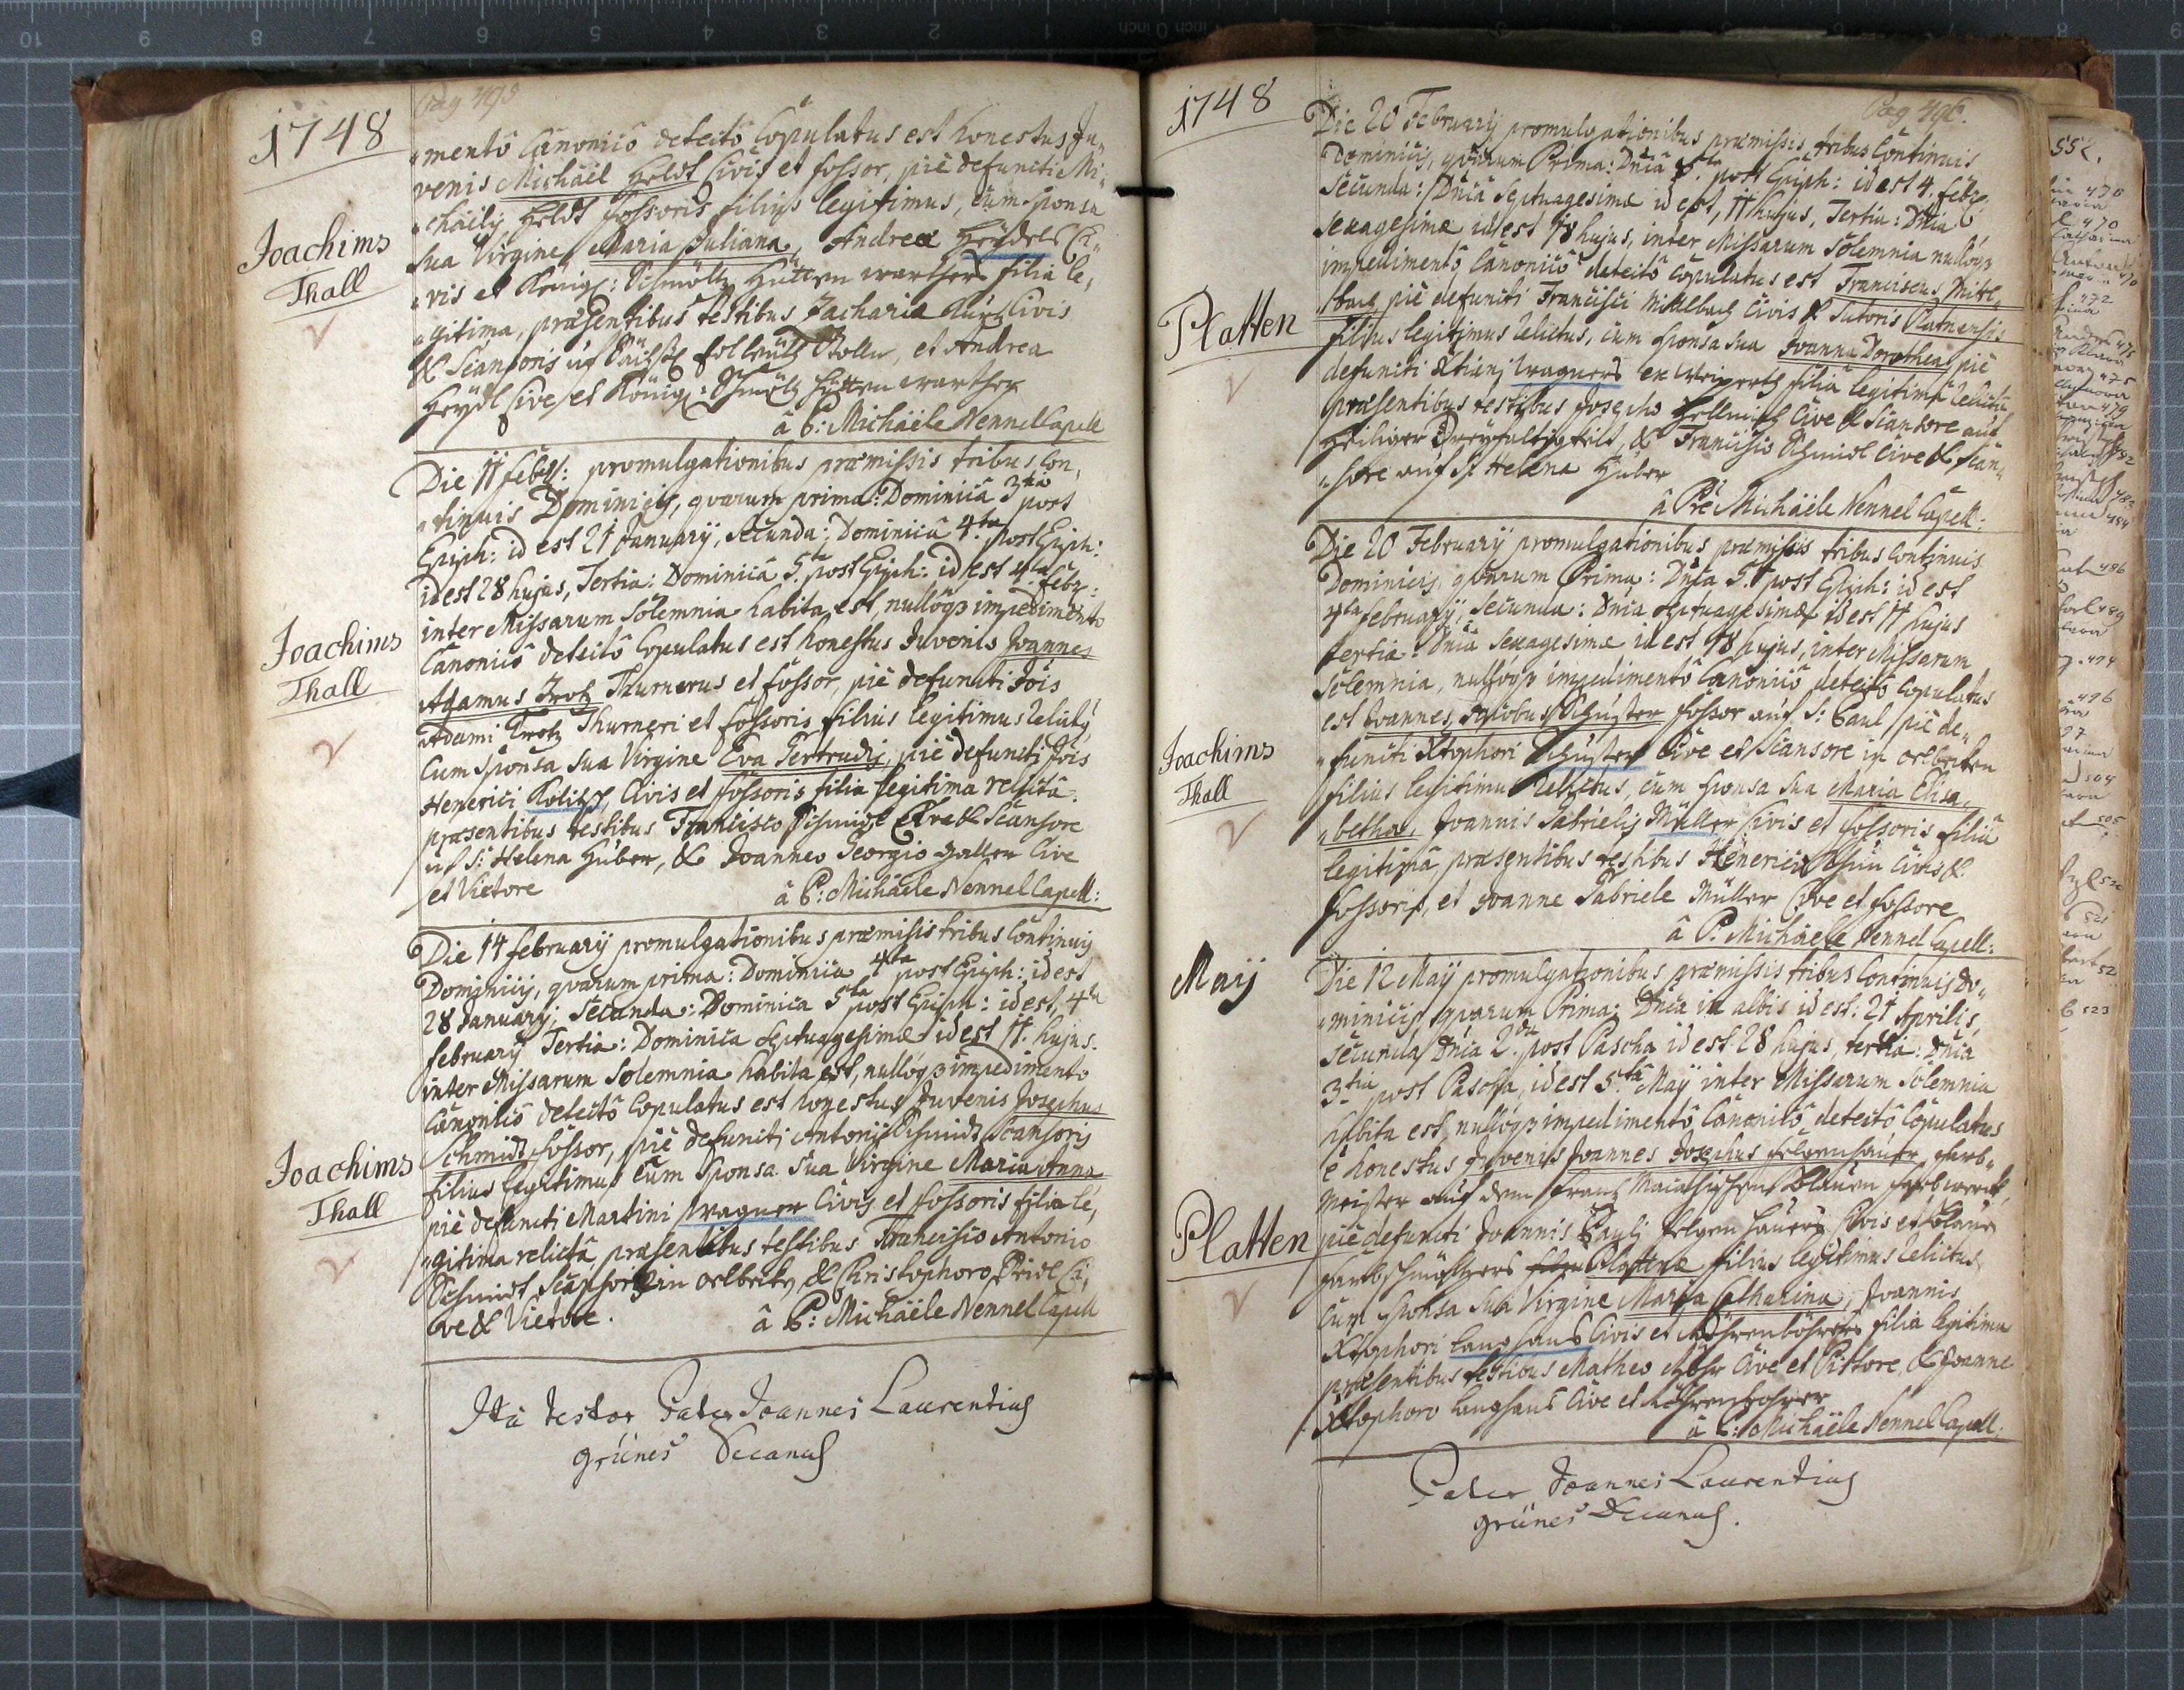 1748
pag 495
Joachims
Thall
"mentô Canonicô detectô Copulatus est honestus Ju„
venis Michäel Heldt Civis et fossor, piè defuncti Mi„
"chäelis Heldt fossoris filius legitimus, cum sponsa
sua Virgine Maria Juliana, Andreæ Heydels Ci„
"vis et Königl: Schmöltz Hütten warthers filia le„
"gitima, præsentibus testibus Zacharia Civis
& Scansoris Stolln, et Andrea
Heydl Cive et Königl: Schmöltz Hütten warther
â P: Michäele Nennel Capell
Joachims
Thall
Die 11 febr: promulgationibus præmissis tribus Con„
"tinuis Dominicis, qvarum prima: Dominicâ 3tia post
Epiph: id est 21 January, Secunda: Dominicâ 4ta post Epiph:
id est 28 hujus, Tertia: Dominicâ 5ta post Epiph: id est 4ta febr:
inter Missarum Solemnia habita est, nullóq3 impedimento
Canonicô detectô Copulatus est honestus Juvenis Joannes
Adamus Trotz Thurnerus et fossor, piè defuncti Jois
Adami Trotz Thurneri et fossoris filius legitimus relictus
Cum Sponsa sua Virgine Eva Gertrudis, piè defuncti Jois
Henerici Civis et fossoris filia legitima relicta.
præsentibus testibus Francisco Schmidt Cive & Scansore
uf S: Helena Huber, & Joanneo Georgio Cive
et Vietore
â P: Michäele Nennel Capell:
Joachims
Thall
Die 14 february promulgationibus præmisis tribus Continuis
Dominicis, qvarum prima: Dominica 4ta post Epiph: id est
28 January, Secunda: Dominica 5ta post Epiph: id est, 4ta
february Tertia: Dominica Septuagesimæ id est 11. hujus.
inter Missarum Solemnia habita est, nullóq3 impedimento
Canonicô detectô Copulatus est honestus Juvenis Josephus
Schmidt fossor, piè defuncti Antonij Schmidt Scansoris
filius legitimus cum Sponsa sua Virgine Maria Anna
piè defuncti Martini Wagner Civis et fossoris filia le„
"gitima relicta, præsentibus testibus Francisco Antonio
Schmidt Scansore in & Christophoro Ci„
"ve & Vietore.
â P: Michäele Nennel Capell
Ita testor Pater Joannes Laurentius
grünes Decanus
1748
Pag 496.
Platten
Die 20 February promulgationibus præmissis tribus Continuis
Dominicis, qvarum Prima: Dnicâ 5ta post Epiph: id est 4. febr.
Secunda: Dnicâ Septuagesimæ id est, 11 hujus, Tertia: Dnica
Sexagesimæ id est 18 hujus, inter Missarum Solemnia nullóq3
impedimentô Canonicô detectô copulatus est Franciscus Mitl„
"bach piè defuncti Francisci Mittlbach Civis & Sutoris Platnensis
filius legitimus relictus, cum sponsa sua Joanna Dorothea, piè
defuncti Xtiani Wagners ex Weiperth filia legitima relicta
præsentibus testibus Josepho Hellmich Cive & Scansore auf
Heiliger Dreyfaltigkeit, & Francisco Schmidt Cive & Scan„
"sore auf S: Helena Huber
â Pre Michäele Nennel Capell:
Joachims
Thall
Die 20 February promulgationibus præmissis tribus continuis
Dominicis, qvarum Prima: Dnica 5ta post Epiph: id est
4ta february, Secunda: Dnica Septuagesimæ id est 11 hujus
tertia: Dnica Sexagesimæ id est 18 hujus, inter Missarum
Solemnia, nullóq3 impedimentô Canonicô detectô Copulatus
est Joannes Jacobus Schuster fossor auf S: Paul, piè de„
"functi Xtophori Schuster Cive et Scansore in
filius legitimus relictus, cum sponsa sua Maria Elisa„
"betha, Joannis Gabrielis Müller Civis et fossoris filia
legitima præsentibus testibus Henerico Civis &
fossoris, et Joanne Gabriele Müller Cive et fossore
â P: Michäele Nennel Capell:
Maij
Platten
Die 12 Maij promulgationibus præmissis tribus Continuis Do„
"minicis, qvarum Prima: Dnica in albis id est: 21 Aprilis,
Secunda Dnica 2da post Pascha id est 28 hujus, tertia: Dnica
3tia post Pascha, id est 5ta Maij inter Missarum Solemnia
habita est, nullóq3 impedimentô Canonicô detectô Copulatus
ê honestus Juvenis Joannes Josephus felgenhauer, farb„
meister auf dem Frantz Blauen farbwerck,
piè defuncti Joannis Pauli felgenhauers Civis et Blau
Plattenæ filius legitimus relictus
cum Sponsa sua Virgine Maria Catharina, Joannis
Xtophori Langhans Civis et Röhrenbohrers filia legitima
præsentibus testibus Matheo Cive et Pistore & Joanne
Xtophoro Langhans Cive et Röhrenbohrer
â P: Michäele Nennel Capell.
Pater Joannes Laurentius
grünes Decanus.